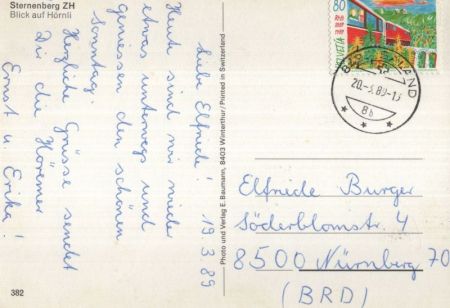 Sternenberg ZH
Blick auf Hörnli
Liebe Elfriede! 19.3.89
Heute sind wir wieder
etwas unterwegs und
geniessen den schönen
Sonntag.
Herzliche Grüsse sendet
Dir die
Ernst u. Erika!
382
Photo und Verlag E. Baumann, 8403 Winterthur / Printed in Switzerland
80
HELVETIA
20.-3.89-13
8b
Elfriede Burger
Söderblomstr. 4
8500 Nürnberg 70
(BRD)